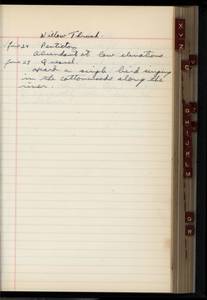 Willow Thrush.
June 24 Penticton
Abundant at low elevations
June 29
Heard a single bird singing
in the cottonwoods along the
river.